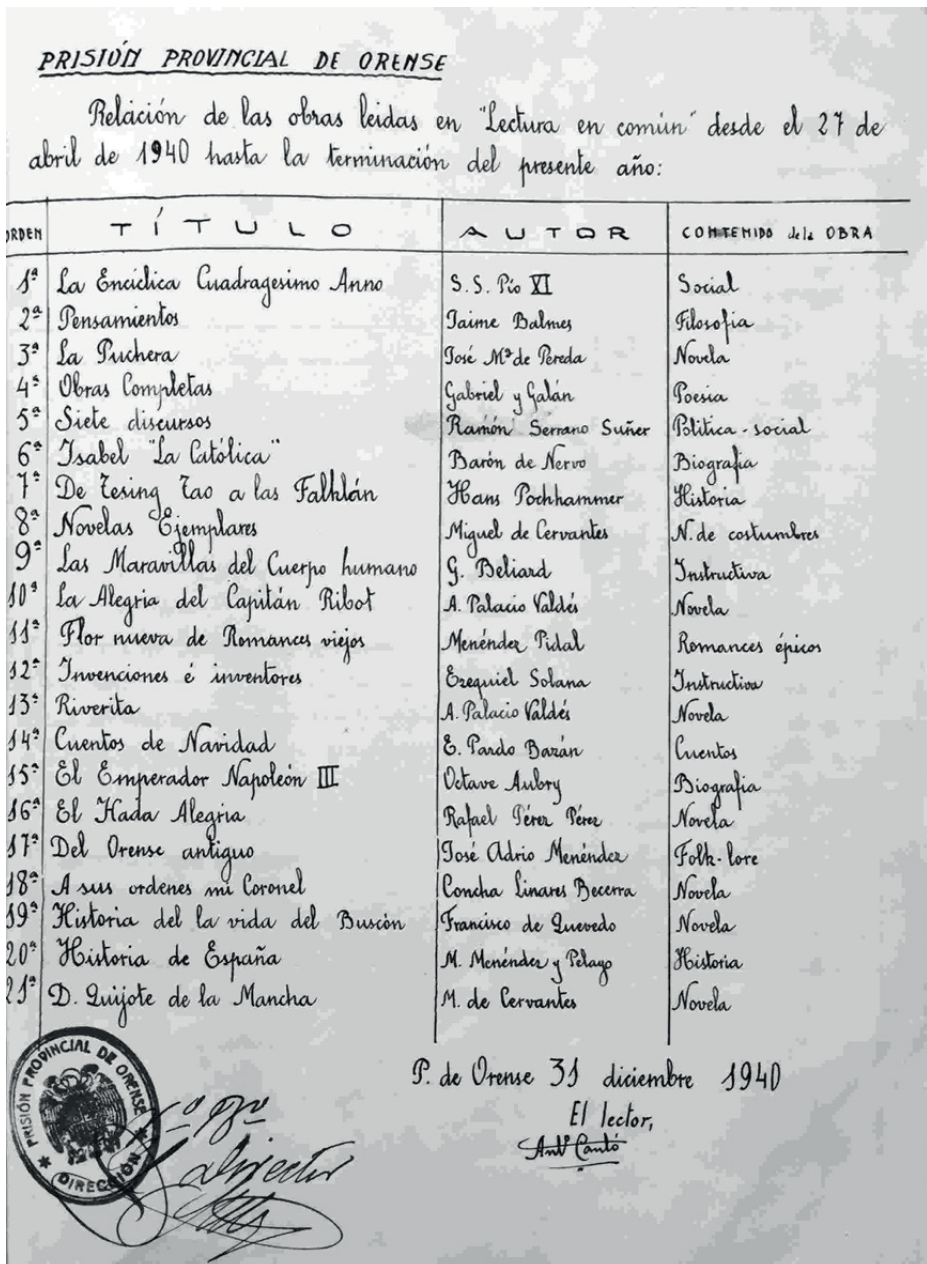 PRISIÓN PROVINCIAL DE ORENSE
Relación de las obras leidas en "Lectura en común" desde el 27 de
abril de 1940 hasta la terminación del presente año:
ORDEN TÍTULO AUTOR CONTENIDO de la OBRA
1ª La Encíclica Cuadragesimo Anno S.S. Pío XI Social
2ª Pensamientos Jaime Balmes Filosofia
3ª La Puchera José Mª de Pereda Novela
4ª Obras Completas Gabriel y Galán Poesia
5ª Siete discursos Ramón Serrano Suñer Politica-social
6ª Isabel "La Católica" Barón de Nervo Biografia
7ª De Tesing Tao a las Falhlán Hans Pochhammer Historia
8ª Novelas Ejemplares Miguel de Cervantes N. de costumbres
9ª Las Maravillas del Cuerpo humano G. Beliard Instructiva
10ª La Alegria del Capitán Ribot A. Palacio Valdés Novela
11ª Flor nueva de Romances viejos Menéndez Pidal Romances épicos
12ª Invenciones é inventores Ezequiel Solana Instructiva
13ª Riverita A. Palacio Valdés Novela
14ª Cuentos de Navidad E. Pardo Bazán Cuentos
15ª El Emperador Napoleón III Octave Aubry Biografia
16ª El Hada Alegria Rafael Pérez Pérez Novela
17ª Del Orense antiguo José Adrio Menéndez Folk-lore
18ª A sus ordenes mi Coronel Concha Linares Becerra Novela
19ª Historia del la vida del Buscón Francisco de Quevedo Novela
20ª Historia de España M. Menéndez y Pelayo Historia
21ª D. Quijote de la Mancha M. de Cervantes Novela
P. de Orense 31 diciembre 1940
El lector,
Antº Cantó
PRISIÓN PROVINCIAL DE ORENSE
DIRECCIÓN
Vº Bº
El director